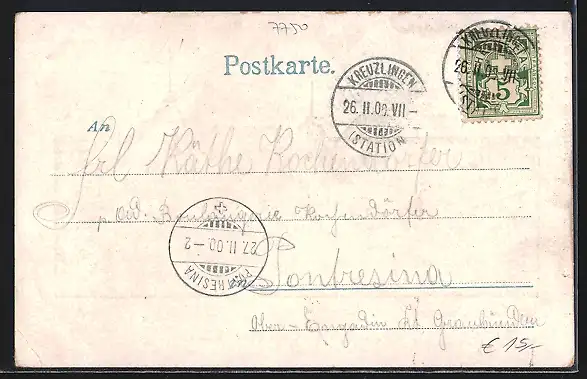 7750
Postkarte.
KREUZLINGEN
26. II. 00. VII -
(STATION)
KREUZLINGEN
26. II. 00. VII
5
An
Frl. Käthe Kochendörfer
Boulangerie Kochendörfer
27. II. 00. - 2
PONTRESINA
Pontresina
Ober-Engadin Ct. Graubünden
€ 15,-